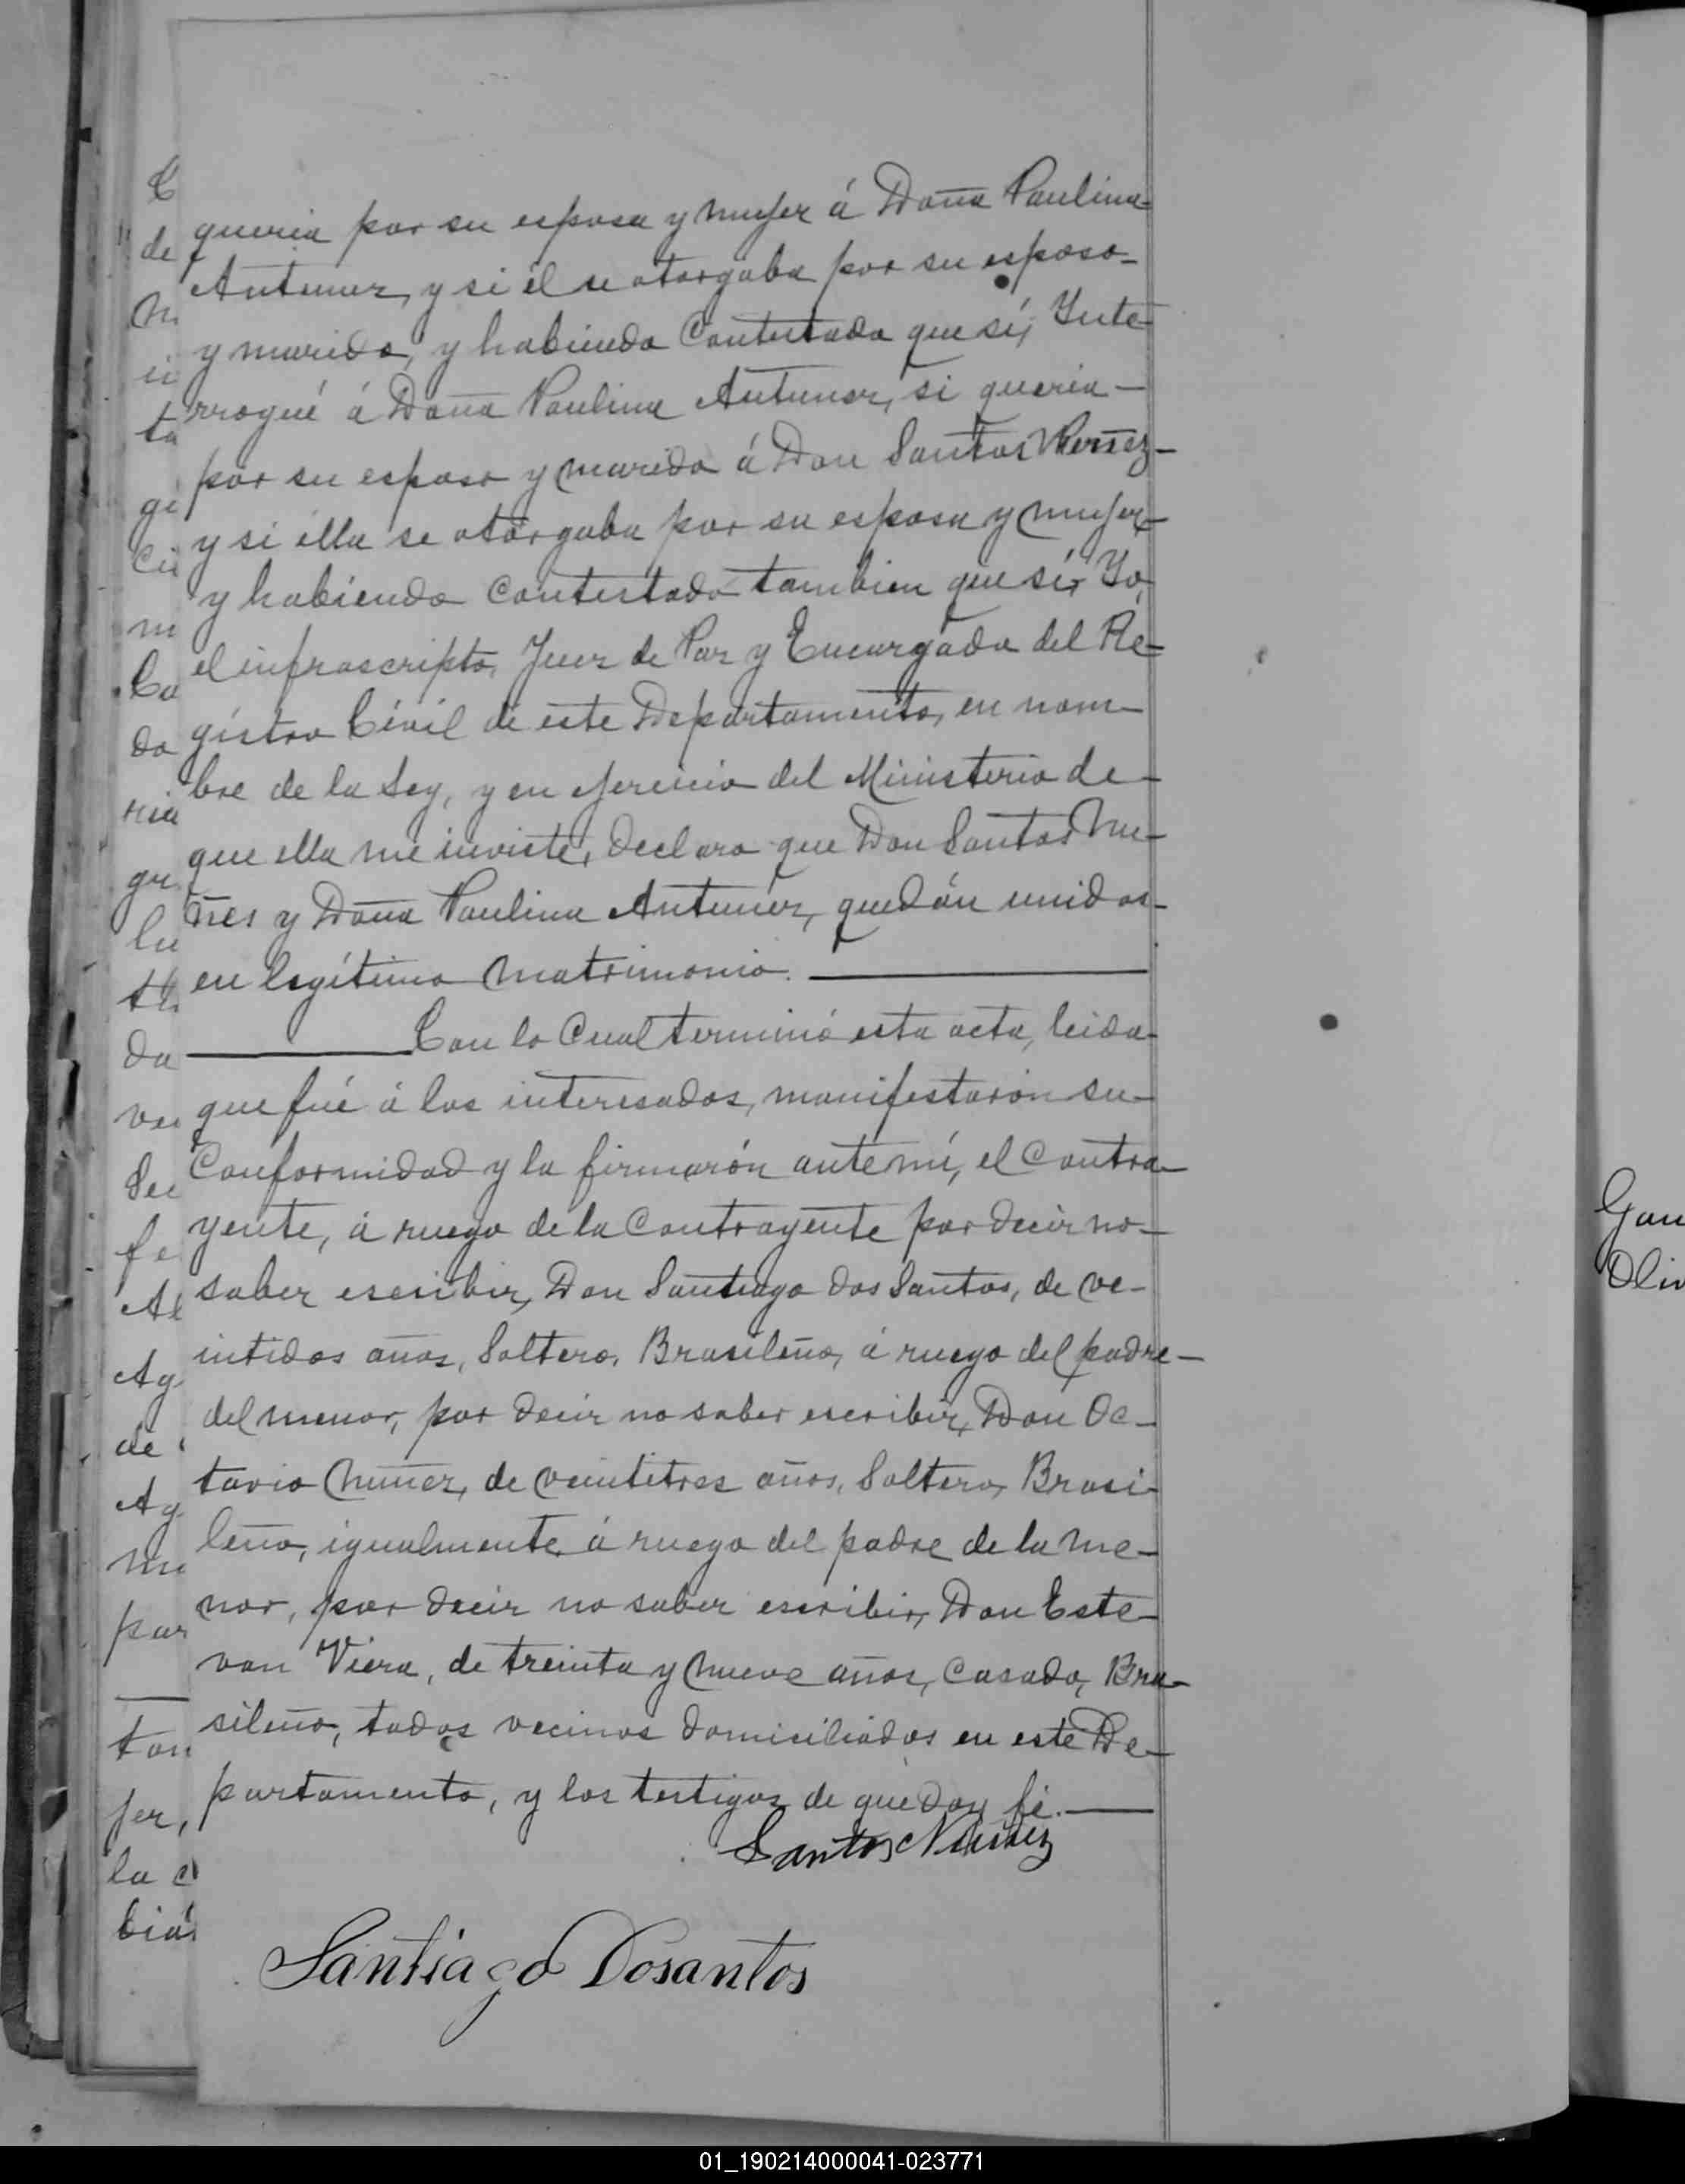 queria por su esposa y mujer á Doña Paulina
Antunez, y si él se otorgaba por su esposo-
y marido, y habiendo Contestado que sí, Inte-
rrogué á Doña Paulina Antunez, si queria-
por su esposo y marido á Don Santos
y si ella se otorgaba por su esposa y mujer-
y habiendo Contestado tambien que sí, Yo,
el infrascripto, Juez de Paz y Encargado del Re-
gistro Civil de este Departamento, en nom-
bre de la Ley, y en ejercicio del Ministerio de-
que ella me inviste, declaro que Don Santos Nu-
ñes y Doña Paulina Antunez, quedán unidos-
en legítimo Matrimonio.
Con lo Cual terminó esta acta, leida-
que fué á los interesados, manifestarón su-
Conformidad y la firmarón ante mí, el Contra-
yente, á ruego de la Contrayente por decir no-
saber escribir, Don Santiago dos Santos, de ve-
intidos años, Soltero, Brasileño, á ruego del padre-
del menor, por decir no saber escribir, Don Oc-
tavio Nuñez, de veintitres años, Soltero, Brasi-
leño, igualmente á ruego del padre de la me-
nor, por decir no saber escribir, Don Este-
van Viera, de treinta y nueve años, Casado, Bra-
sileño, todos vecinos domiciliados en este De-
partamento, y los testigos de que doy fé.
Santos Nuñez
Santiago Dosantos
01_190214000041-023771